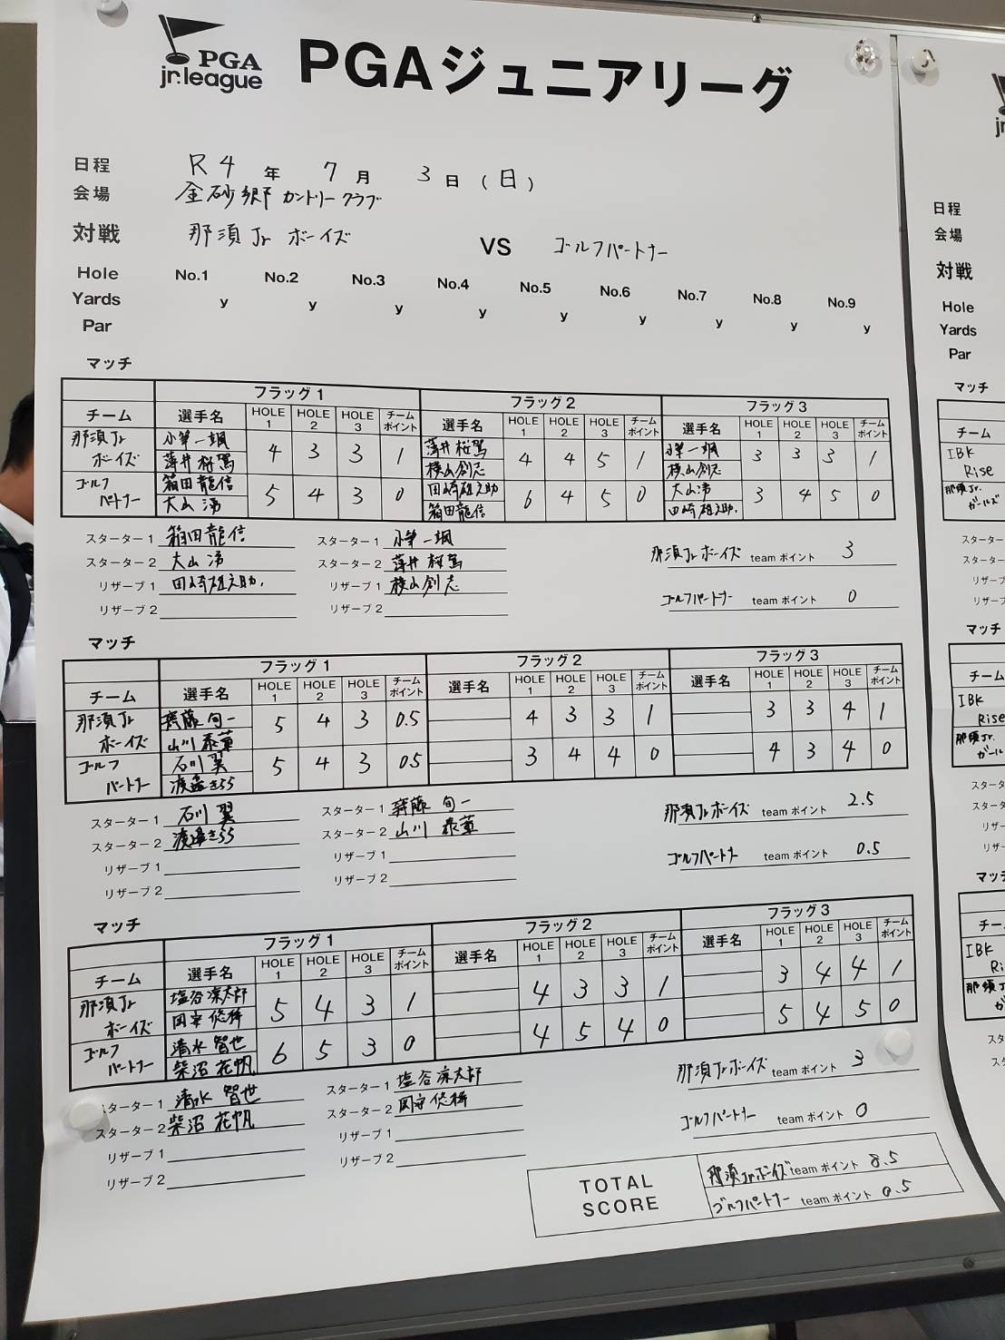 PGA
jr.league
PGAジュニアリーグ
日程 R4 年 7 月 3 日 (日)
会場 金砂郷カントリークラブ
対戦 那須Jr ボーイズ VS ゴルフパートナー
Hole No.1 No.2 No.3 No.4 No.5 No.6 No.7 No.8 No.9
Yards y y y y y y y y y
Par
マッチ
フラッグ1 フラッグ2 フラッグ3
チーム 選手名 HOLE 1 HOLE 2 HOLE 3 チームポイント 選手名 HOLE 1 HOLE 2 HOLE 3 チームポイント 選手名 HOLE 1 HOLE 2 HOLE 3 チームポイント
那須Jr ボーイズ 小筆一颯 薄井桜篤 4 3 3 1 薄井桜篤 横山創志 4 4 5 1 小筆一颯 横山創志 3 3 3 1
ゴルフパートナー 箱田龍信 大山湧 5 4 3 0 田崎雄之助 箱田龍信 6 4 5 0 大山湧 田崎雄之助. 3 4 5 0
スターター1 箱田龍信 スターター1 小筆一颯
スターター2 大山湧 スターター2 薄井桜篤
リザーブ1 田崎雄之助. リザーブ1 横山創志
リザーブ2 リザーブ2
那須Jrボーイズ team ポイント 3
ゴルフパートナー team ポイント 0
マッチ
フラッグ1 フラッグ2 フラッグ3
チーム 選手名 HOLE 1 HOLE 2 HOLE 3 チームポイント 選手名 HOLE 1 HOLE 2 HOLE 3 チームポイント 選手名 HOLE 1 HOLE 2 HOLE 3 チームポイント
那須Jr ボーイズ 齊藤旬一 山川泰董 5 4 3 0.5 4 3 3 1 3 3 4 1
ゴルフパートナー 石川翼 渡邉きらら 5 4 3 0.5 3 4 4 0 4 3 4 0
スターター1 石川翼 スターター1 齊藤旬一
スターター2 渡邉きらら スターター2 山川泰董
リザーブ1 リザーブ1
リザーブ2 リザーブ2
那須Jrボーイズ team ポイント 2.5
ゴルフパートナー team ポイント 0.5
マッチ
フラッグ1 フラッグ2 フラッグ3
チーム 選手名 HOLE 1 HOLE 2 HOLE 3 チームポイント 選手名 HOLE 1 HOLE 2 HOLE 3 チームポイント 選手名 HOLE 1 HOLE 2 HOLE 3 チームポイント
那須Jr ボーイズ 塩谷涼太郎 5 4 3 1 4 3 3 1 3 4 4 1
ゴルフパートナー 清水智世 柴沼花帆 6 5 3 0 4 5 4 0 5 4 5 0
スターター1 清水智世 スターター1 塩谷涼太郎
スターター2 柴沼花帆 スターター2
リザーブ1 リザーブ1
リザーブ2 リザーブ2
那須Jrボーイズ team ポイント 3
ゴルフパートナー team ポイント 0
TOTAL SCORE
那須Jrボーイズ team ポイント 8.5
ゴルフパートナー team ポイント 0.5
日程
会場
対戦
Hole
Yards
Par
マッチ
チーム
IBK
Rise
那須Jr.
ガールズ
スターター
スターター
リザーブ
リザーブ
マッチ
チーム
IBK
Rise
那須Jr.